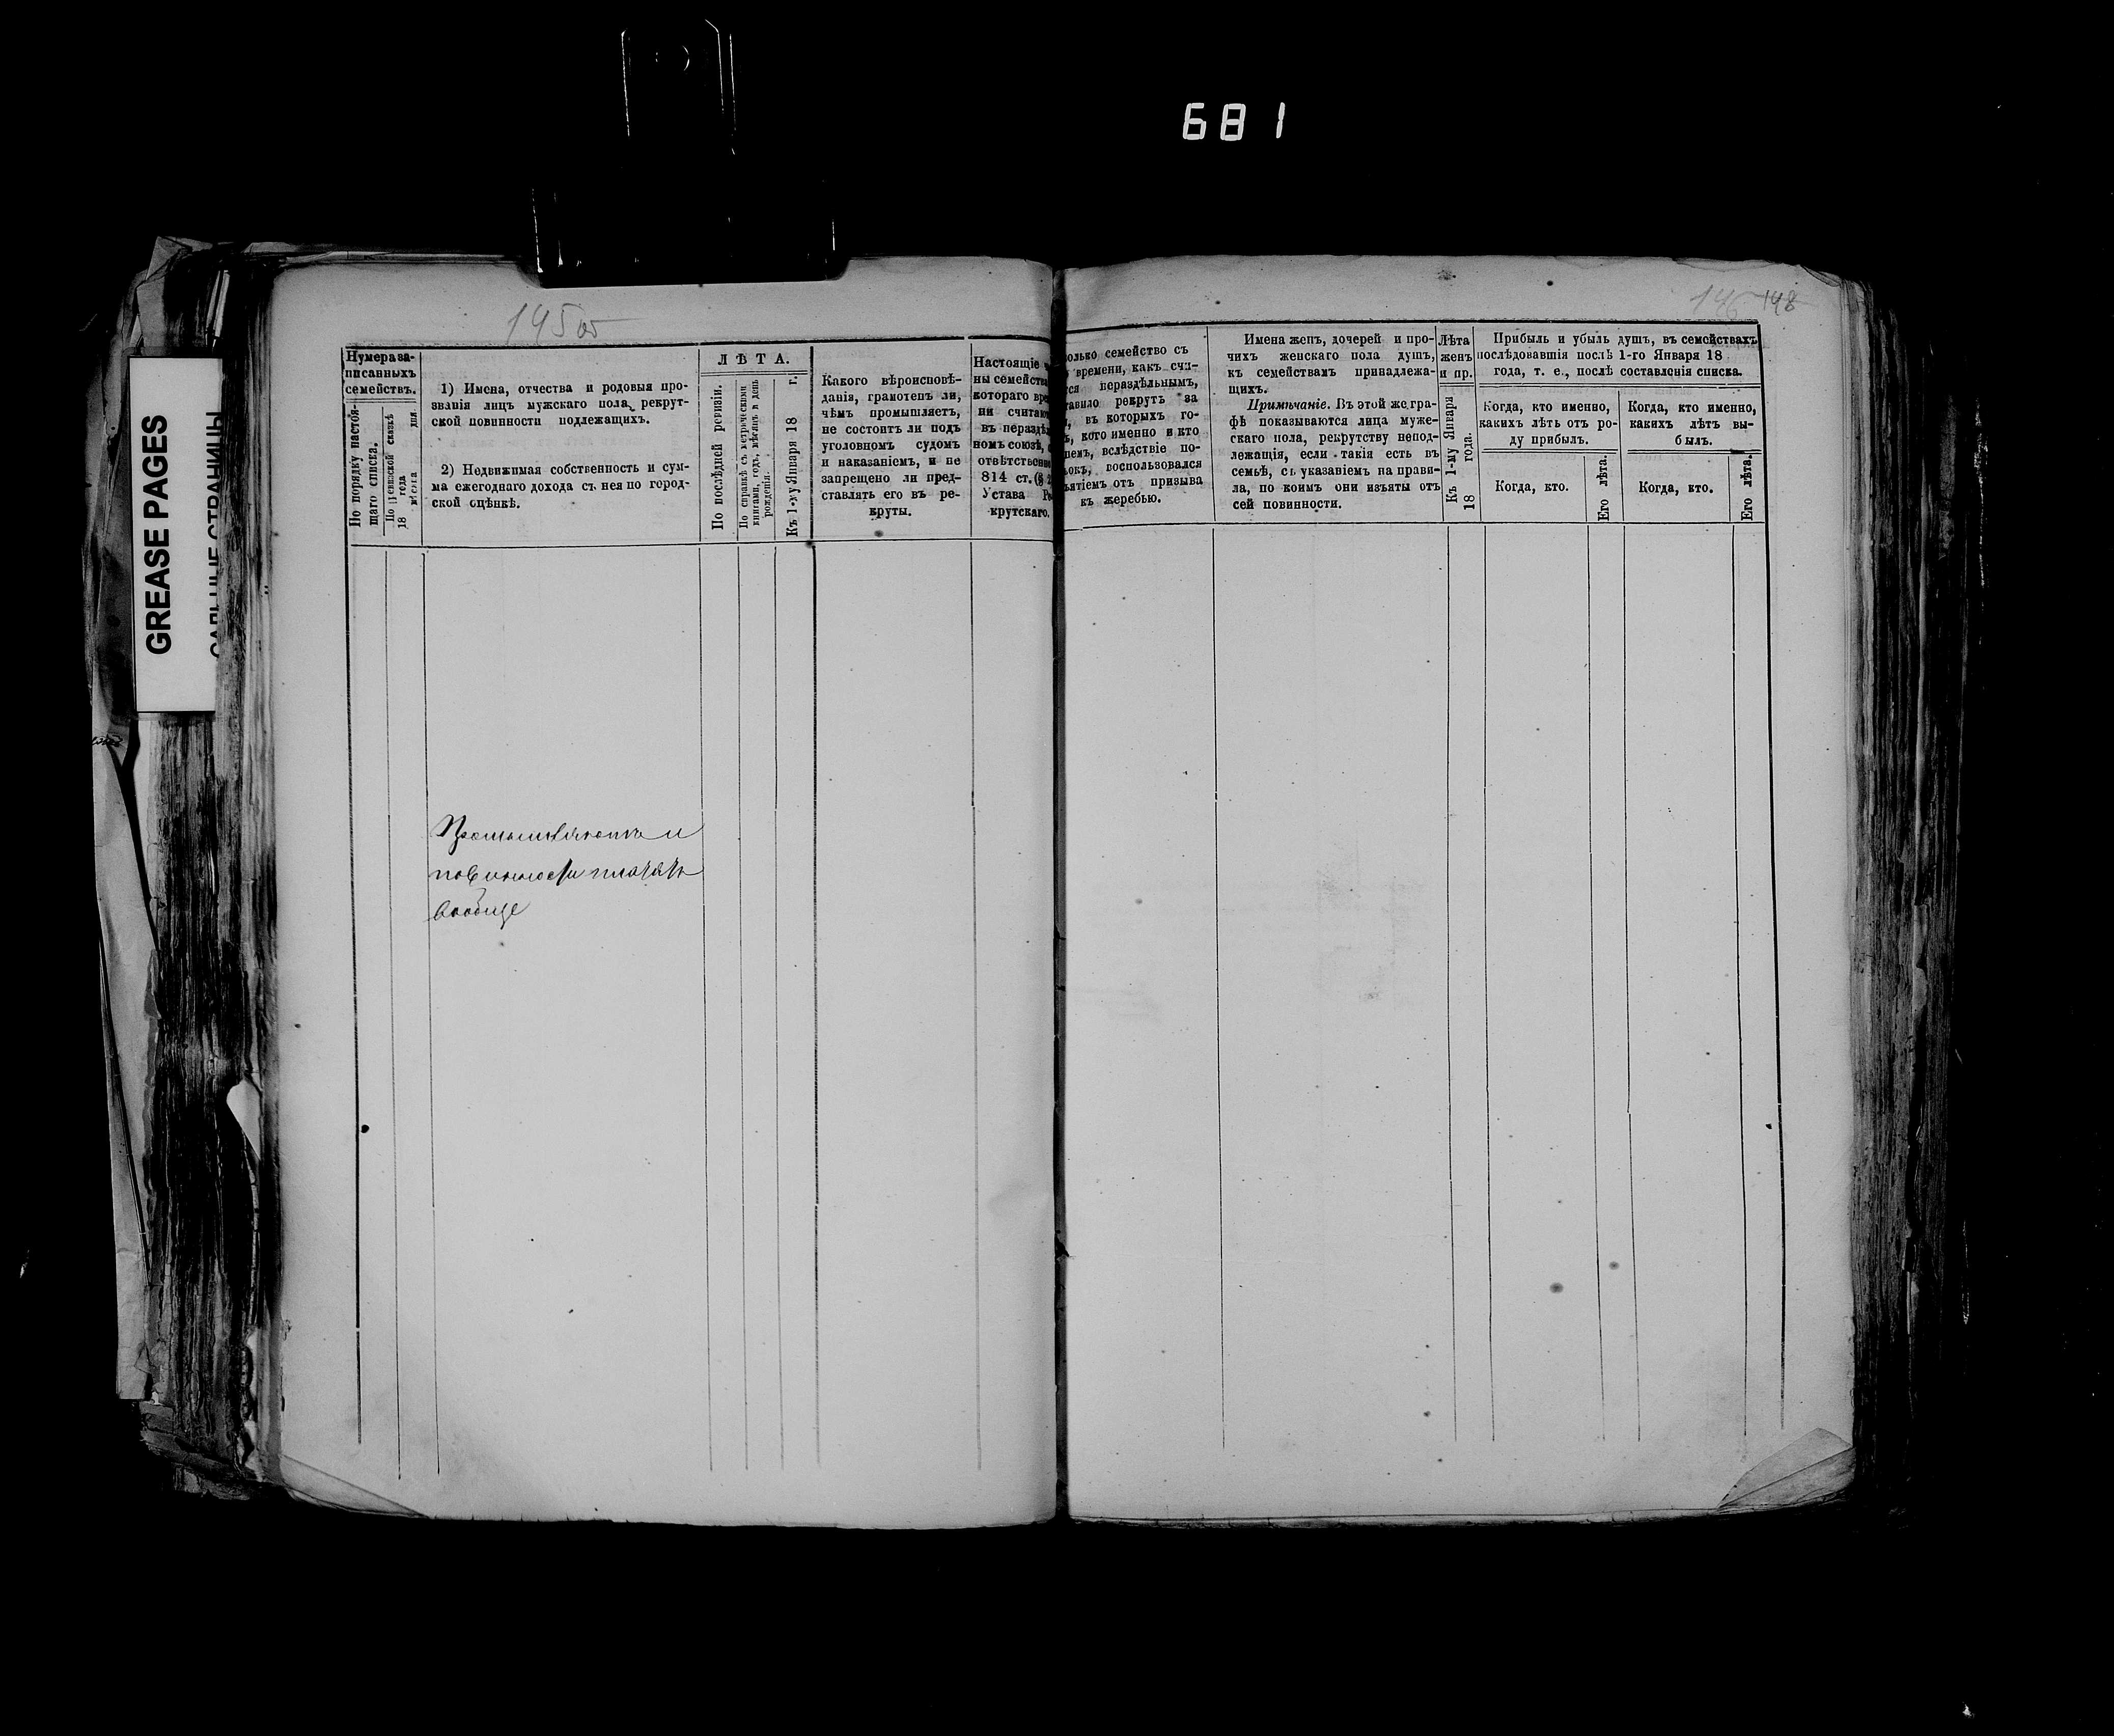 681
145об
146 148
GREASE PAGES
САЛЬНЫЕ СТРАНИЦЫ
Нумера за-
писанныхъ
семействъ.
По порядку настоя-
щаго списка.
По ревизской сказкѣ
18 года
мѣсяца дня.
1) Имена, отчества и родовыя про-
званія лицъ мужскаго пола, рекрут-
ской повинности подлежащихъ.
2) Недвижимая собственность и сум-
ма ежегоднаго дохода съ нея по город-
ской оцѣнкѣ.
ЛѢТА.
По послѣдней ревизіи.
По справкѣ съ метрическими
книгами, годъ, мѣсяцъ и день
рожденія.
Къ 1-му Января 18 г.
Какого вѣроисповѣ-
данія, грамотенъ ли,
чѣмъ промышляетъ,
не состоитъ ли подъ
уголовномъ судомъ
и наказаніемъ, и не
запрещено ли пред-
ставлять его въ ре-
круты.
Настоящіе
ны семейства
котораго вре
ни считаю
въ нераздѣ
номъ союзѣ,
отвѣтственно
814 ст. (§
Устава Ре
крутскаго.
олько семейство съ
времени, какъ счи-
тся нераздѣльнымъ,
тавило рекрутъ за
, въ которыхъ го-
ъ, кого именно и кто
немъ, вслѣдствіе по-
окъ, воспользовался
ъятіемъ отъ призыва
къ жеребью.
Имена женъ, дочерей и про-
чихъ женскаго пола душъ,
къ семействамъ принадлежа-
щихъ.
Примѣчаніе. Въ этой же гра-
фѣ показываются лица муже-
скаго пола, рекрутству непод-
лежащія, если такія есть въ
семьѣ, съ указаніемъ на прави-
ла, по коимъ они изъяты отъ
сей повинности.
Лѣта
женъ
и пр.
Къ 1-му Января
18 года.
Прибыль и убыль душъ, въ семействахъ
послѣдовавшія послѣ 1-го Января 18
года, т. е., послѣ составленія списка.
Когда, кто именно,
какихъ лѣтъ отъ ро-
ду прибылъ.
Когда, кто.
Его лѣта.
Когда, кто именно,
какихъ лѣтъ вы-
былъ.
Когда, кто.
Его лѣта.
и
повинности платятъ
вообще